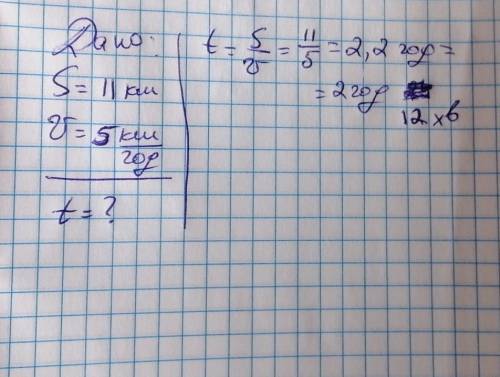 Дано:
S = 11 км
v = 5 км/год
t = ?
t = S/v = 11/5 = 2,2 год =
= 2 год
12 хв